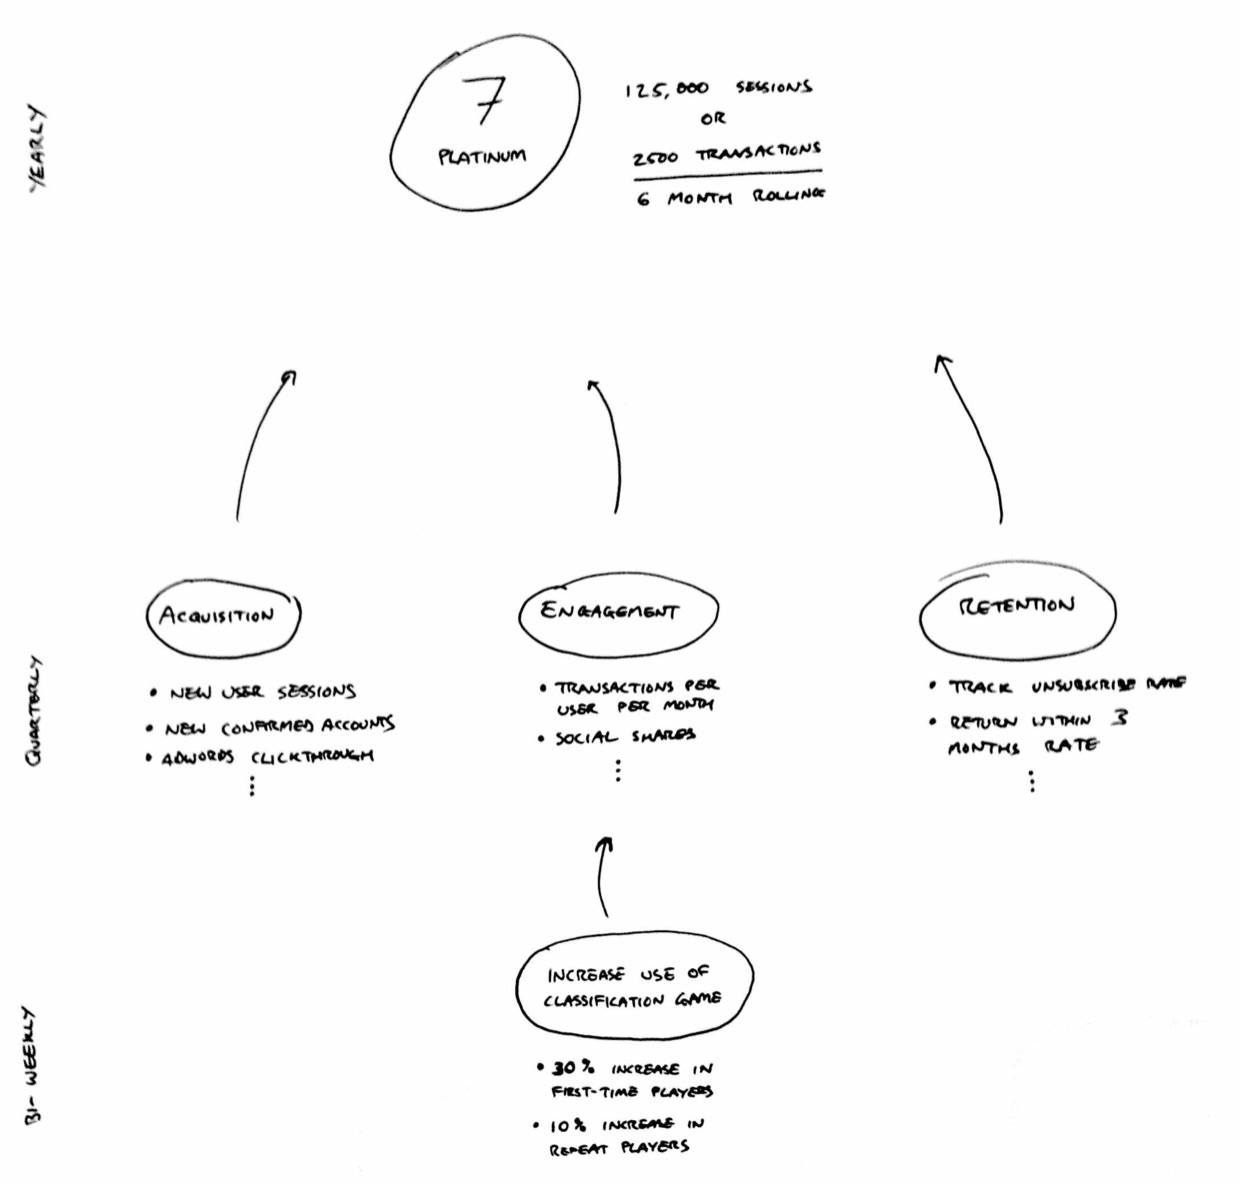 YEARLY
7
PLATINUM
125,000 SESSIONS
OR
2500 TRANSACTIONS
6 MONTH ROLLING
QUARTERLY
ACQUISITION
• NEW USER SESSIONS
• NEW CONFIRMED ACCOUNTS
• ADWORDS CLICKTHROUGH
⋮
ENGAGEMENT
• TRANSACTIONS PER
USER PER MONTH
• SOCIAL SHARES
⋮
RETENTION
• TRACK UNSUBSCRIBE RATE
• RETURN WITHIN 3
MONTHS RATE
⋮
BI-WEEKLY
INCREASE USE OF
CLASSIFICATION GAME
• 30% INCREASE IN
FIRST-TIME PLAYERS
• 10% INCREASE IN
REPEAT PLAYERS